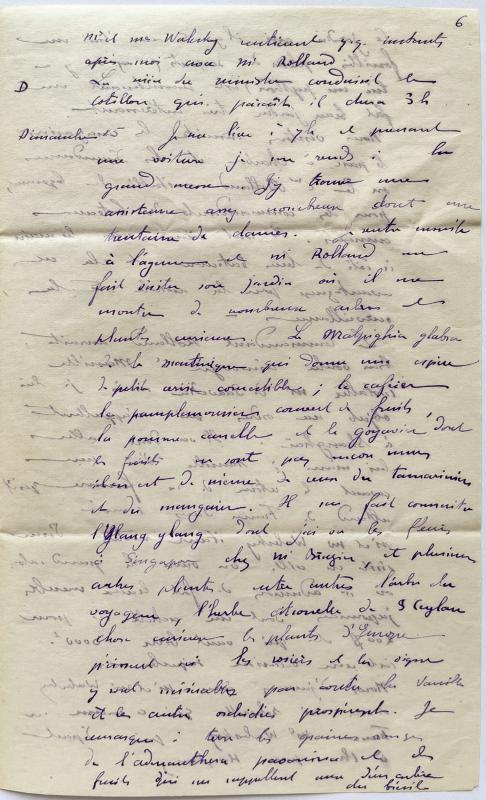 6
Mr et me Walesky rentirent qq instants
après moi avec Mr Rolland
La nièce du ministre conduisit le
D
cotillon qui, paraît il dura 3 h
Dimanche 15 Je me lève à 7h et prenant
une voiture je me rends à la
grand messe J'y trouve une
assistance assez nombreuse dont une
trentaine de dames. Je rentre ensuite
à l'agence et Mr Rolland me
fait visiter son jardin où il me
montre de nombreux arbres et
plantes curieuses. Le Malpighia glabra
de la Martinique qui donne une espèce
de petite cerise comestible; le caféier
le pamplemoussier couvert de fruits,
la pomme canelle et le goyavier dont
les fruits ne sont pas encore murs
il en est de même de ceux du tamarinier
et du manguier. Il me fait connaître
l'Ylang ylang dont j'ai vu les fleurs
à Singapore chez Mr et plusieurs
autres plantes entre autres l'arbre du
voyageur, l'herbe citronelle de Ceylan
chose curieuse les plantes d'Europe
périssent ici les rosiers et la vigne
y sont misérables par contre les vanilles
et les autres orchidées prospèrent. Je
remarque à terre les graines rouges
de l'adenanthera pavonina et des
fruits qui me rappellent ceux d'un arbre
du brésil